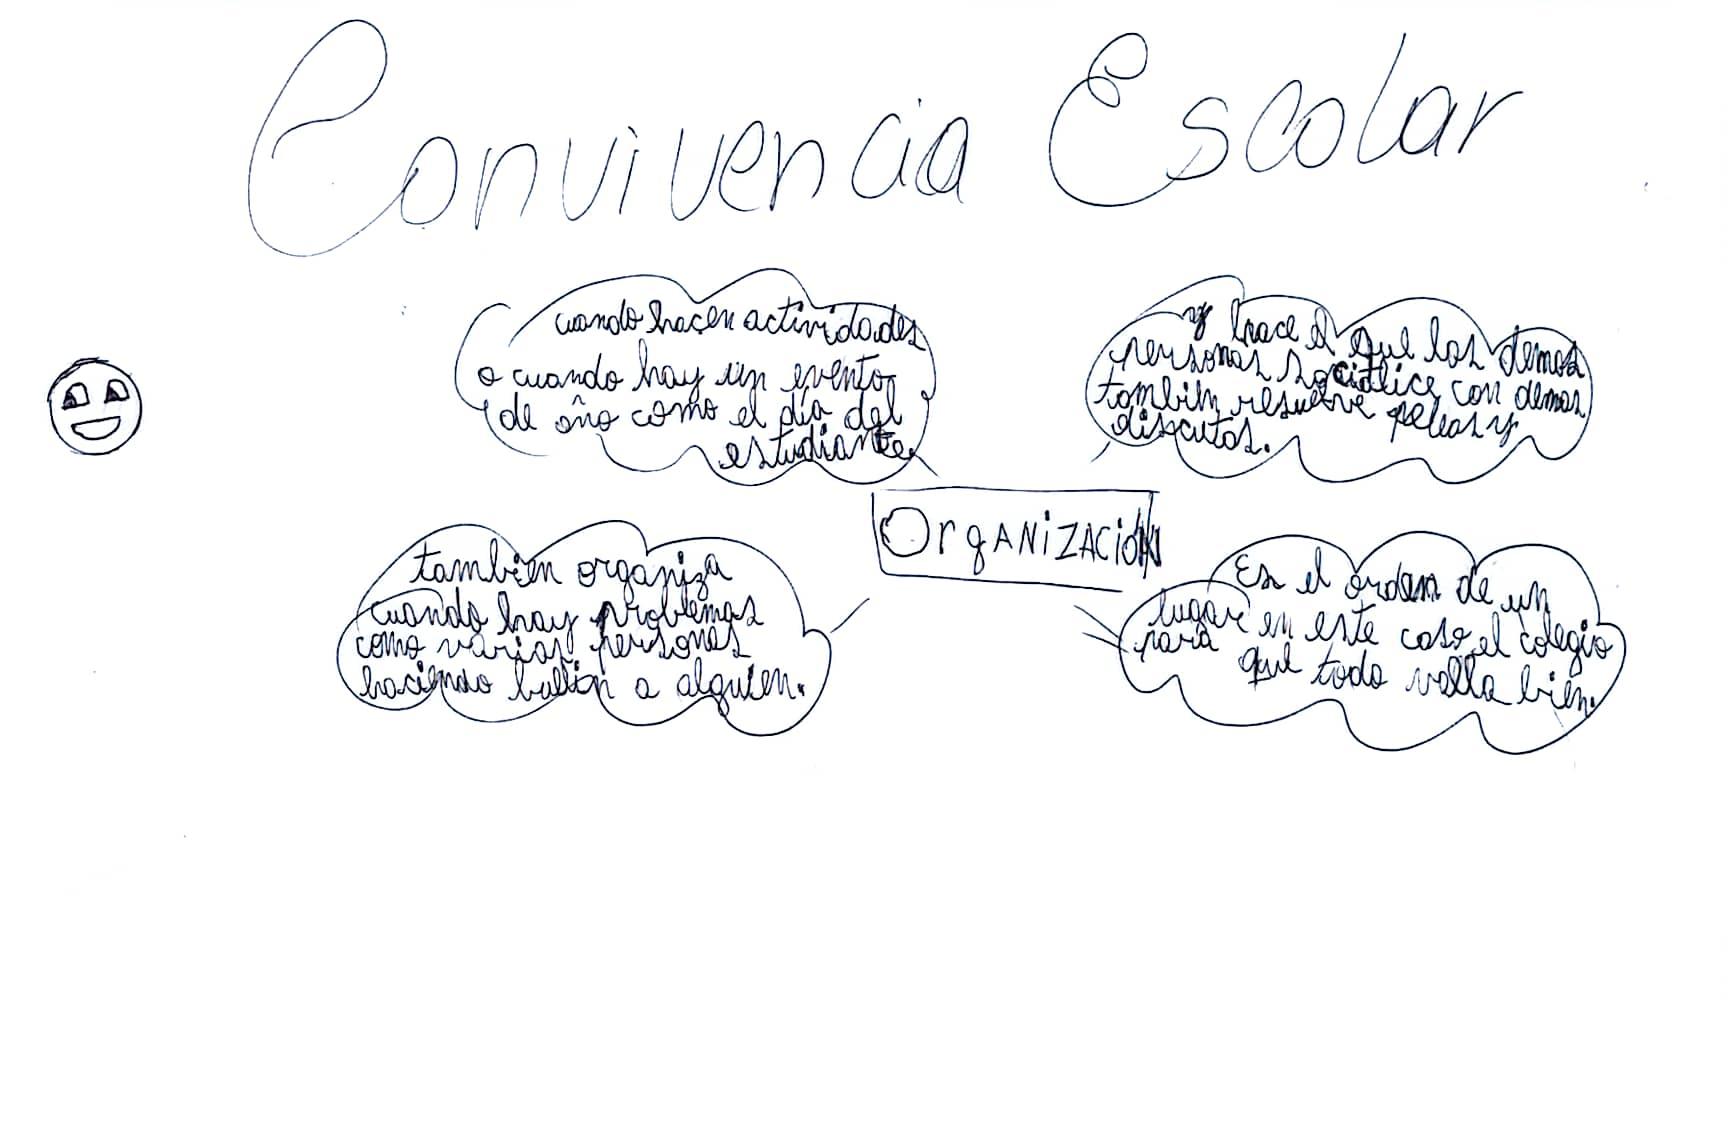 Convivencia Escolar
cuando hacen actividades
o cuando hay un evento
de año como el día del
estudiante.
y hace el que los demas
personas socialice con demas
tambien resuelve peleas y
discutas.
Organización
tambien organiza
cuando hay problemas
como varias personas
haciendo bullin a alguien.
Es el orden de un
lugar en este caso el colegio
para que todo valla bien.